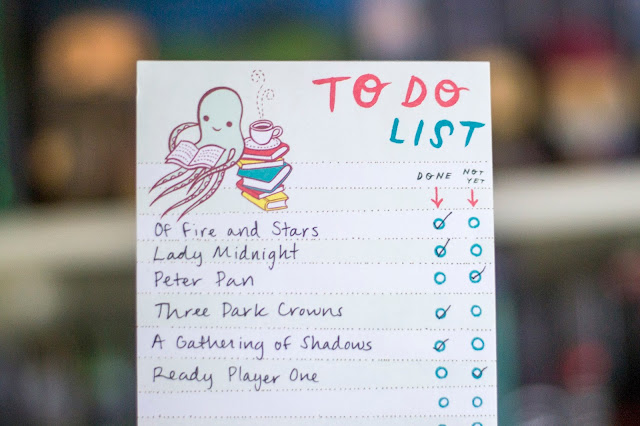 TO DO
LIST
DONE NOT YET
Of Fire and Stars
Lady Midnight
Peter Pan
Three Dark Crowns
A Gathering of Shadows
Ready Player One